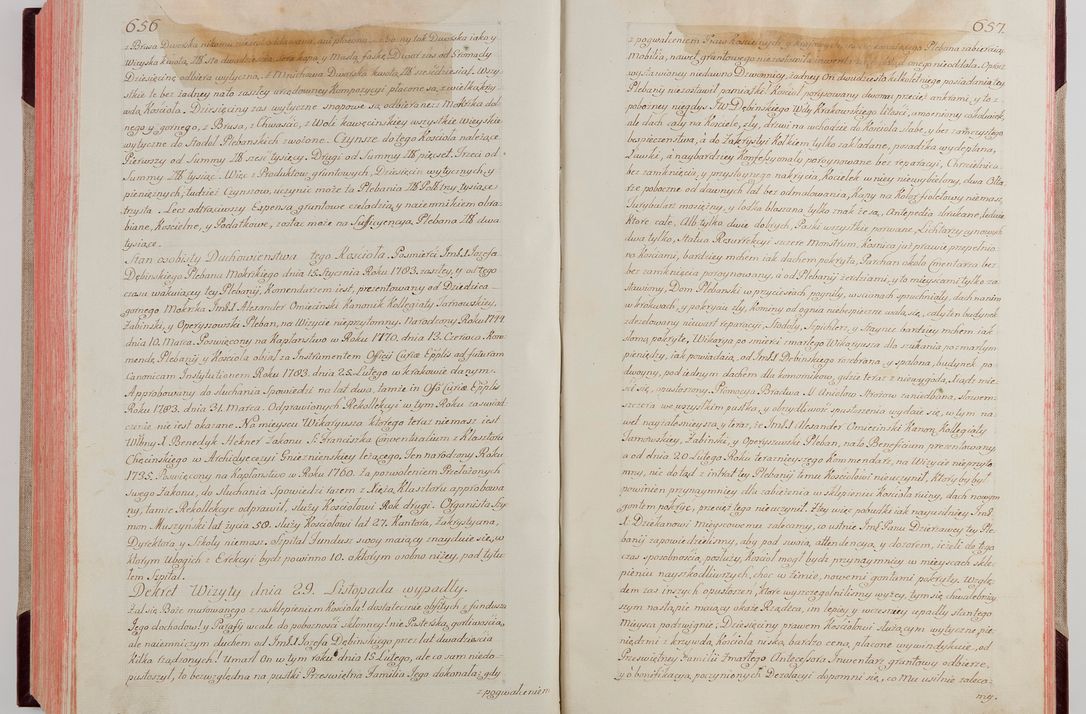 656
z Brusa Dworska nikomu nie
Wieyska kwotą
Dziesięcinę odbiera wytyczną, z Mnichowa Dworska kwotą sześćdziesiąt. Wszy-
stkie te bez żadney na to zaszłey urzędowney Kompozycyi, płacone są, z wielką krzy-
wdą Kościoła. Dziesięciny zas wytyczne snopowe są odbierane z Mokrska dol-
nego y gornego, z Brusa, z Chwaścic, z Woli kawęcinskiey wszystkie Wieyskie
wytyczne do Stodoł Plebanskich zwożone. Czynsze do tego Kościoła należące.
Pierwszy od Summy sześć tysięcy. Drugi od Summy pięćset. Trzeci od
Summy tysiąc. Więc z Produktow gruntowych, Dziesięcin wytycznych, y
pieniężnych, tudzież Czynszow, uczynić może ta Plebania trzy tysiące
trzysta. Lecz odtrąciwszy Expensa gruntowe czeladzią, y naiemnikiem obra-
biane, Kościelne, y Podatkowe, zostać może na Sufficyencyą Plebana dwa
tysiące.
Stan osobisty Duchowienstwa tego Kościoła. Po śmierci Józefa
Dębinskiego Plebana Mokrskiego dnia 15. Stycznia Roku 1783. zaszłey, y od tego
czasu wakuiącey tey Plebanij, Komendarzem iest, prezentowany od Dziedzica
gornego Mokrska Alexander Omieciński Kanonik Kollegiaty Tarnowskiey,
Żabiński, y Operyszowski Pleban, na Wizycie nieprzytomny. Narodzony Roku 1744
dnia 10. Marca. Poświęcony na Kapłanstwo w Roku 1770. dnia 13. Czerwca. Kom-
mendę Plebanij y Kościoła obiął za Instrumentem Officij Curiæ Epplis ad futuram
Canonicam Institutionem Roku 1783. dnia 25. Lutego w krakowie danym.
Approbowany do słuchania Spowiedzi na lat dwa, tamże in Offo Curiæ Epplis
Roku 1783. dnia 31. Marca. Odprawionych Rekollekcyi w tym Roku zaświad-
czenie nie iest okazane. Na mieyscu Wikaryusza ktorego teraz niemasz iest
X. Benedyk Stekner Zakonu S. Franciszka Conventualium z Klasztoru
Chęcinskiego w Archidyecezyi Gnieznienskiey leżącego. Ten narodzony Roku
1735. Poświęcony na Kapłanstwo w Roku 1760. Za pozwoleniem Przełożonych
swego Zakonu, do słuchania Spowiedzi razem z Xiężą Klasztoru approbowa-
ny, tamże Rekollekcye odprawił, służy Kościołowi Rok drugi. Organista Szy-
mon Muszynski lat życia 50. służy Kościołowi lat 27. Kantora, Zakrystyana,
Dyrektora y Szkoły niemasz. Szpital Fundusz swoy maiący znayduie się, w
ktorym Ubogich z Erekcyi bydź powinno 10. o ktorym osobno niżey, pod tytu-
łem Szpital.
Dekret Wizyty dnia 29. Listopada wypadły.
Żal się Boże murowanego z zasklepieniem Kościoła! dostatecznie obfitych z funduszu
Jego dochodow! y Parafiy wcale do pobożności skłonney! nie Pasterską gorliwością,
ale naiemniczym duchem od Józefa Dębinskiego przez lat dwadzieścia
kilka rządzonych! Umarł On w tym roku dnia 15. Lutego, ale co sam niedo-
pustoszył, to bezwzględna na pustki Prześwietna Familia Jego dokonała, gdy
z pogwałceniem
657
z pogwałceniem Praw Kościelnych, y Krajowych,
Mobilia, nawet gruntowego niezostawiła inwentarza, y żądanego nie oddała. Oprocz
wystawioney niedawno Dzwonnicy, żadney On dwudziestokilkoletniego posiadania tey
Plebanij niezostawił pamiątki! Kościoł porysowany dwoma przecież ankrami, y to z
pobożney niegdyś JW. Dębinskiego Wdy Krakowskiego litości, umocniony cokolwiek,
ale dach cały na Kościele, zły, drzwi na wchodzie do Kościoła słabe, y bez zamczystego
bezpieczenstwa, a do Zakrystyi Kołkiem tylko zakładane, posadzka wydeptana,
Ławki, a naybardziey Konfessyonały porysynowane, bez reparacyi, Chrzcielnica
bez zamknięcia, y przystoynego nakrycia, Kociełek w niey niewybielony, dwa Ołta-
rze poboczne od dawnych lat bez odmalowania, Kapy na Kolor fioletowy niemasz,
Turybularz mosiężny, y łodka blaszana tylko znak że są, Antepedia drukane, ledwie
ktore całe, Alb tylko dwie dobrych, Paski wszystkie porwane, Lichtarzy cynowych
dwa tylko, Statua Resurrekcyi szczere Monstrum, Kośnica już prawie przepełnio-
na Kościami, bardziey mchem jak dachem pokryta, Parchan około Cmentarza bez
bez zamknięcia porysynowany, a od Plebanij żerdziami, y to mieyscami tylko za-
stawiony, Dom Plebański w przyciesiach pogniły, w ścianach spruchniały, dach na nim
w krokwach, y pokryciu zły, Kominy od ognia niebezpieczne walą się, cały ten budynek
zdezelowany niewart reparacyi, Stodoły, Spichlerz, y Staynie bardziey mchem iak
słomą pokryte, Wikarya po śmierci zmarłego Wikaryusza dla szukania po zmarłym
pieniędzy, iak powiadaią, od Dębinskiego rozebrana, y spalona, budynek po-
dwoyny, pod iednym dachem dla komornikow, gdzie teraz z niewygodą, Xiądz mie-
ści się, opustoszony. Promocya Bractwa SS. Aniołow Strożow zaniedbana, słowem
szczera we wszystkim pustka, y obrzydliwość spustoszenia wydaie się, w tym na-
wet nayżałośnieysza, y teraz, że Alexander Omiecinski Kanon: Kollegiaty
Tarnowskiey, Żabinski, y Operyszowski Pleban, na to Beneficium prezentowany,
a od dnia 20. Lutego Roku teraznieyszego Kommendarz, na Wizycie nieprzyto-
mny, nic dotąd z intrat tey Plebanij temu Kościołowi nieuczynił, ktory by był
powinien przynaymniey dla zabieżenia w sklepieniu Kościoła ruiny, dach nowym
gontem pokryć, przecież tego nieuczynił. Zby więc pobudki iak nayrędzey
X. Dziekanowi mieyscowemu zalecamy, co ustnie Panu Dzierżawcy tey Ple-
banij zapowiedzielismy, aby pod swoią attendencyą, y dozorem, ieżeli do tego
czas sposobnością, posłuży, Kościoł mogł bydź przynaymniey w mieyscach skle-
pieniu nayszkodliwszych, choć w zimie, nowemi gontami pokryty. Wzglę-
dem zas innych opustoszeń, ktore wyszczegulnilismy wyżey, tym się chwalebniey-
szym następnie maiący okaże Rządzca, im lepiey y wcześniey upadły stan tego
mieysca podzwignie; Dziesięciny prawem Kościołowi służącym wytyczne pie-
niędzmi z krzywdą Kościoła niską bardzo ceną, płacone wywindykuie, od
Prześwietney Familii zmarłego Antecessora Inwentarz gruntowy odbierze,
y o bonifikacyą poczynionych Dezolacyi dopomni się, co Mu usilnie zaleca-
my.